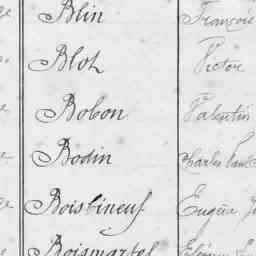 Blin François
Blot Victor
Bobon Valentin
Bodin Charles
Boistineuf Eugène
Boismartel